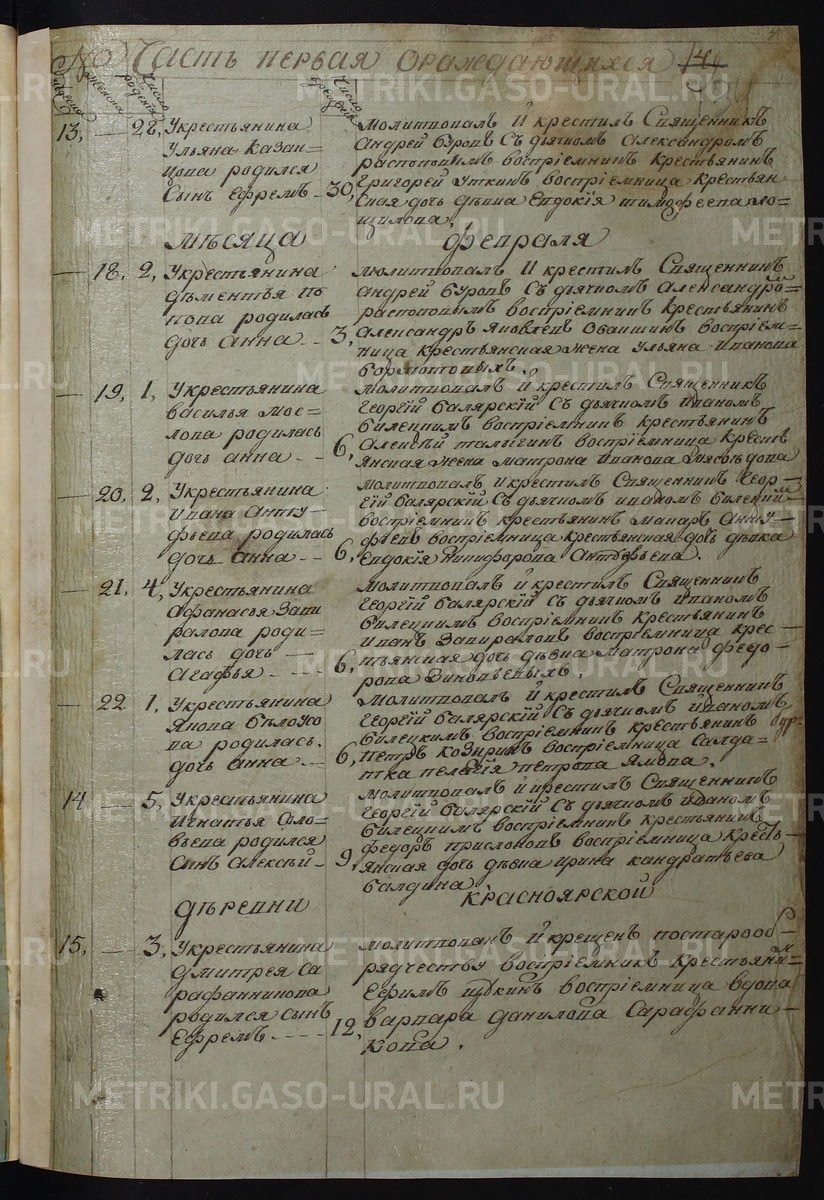 № Часть первая ораждающихся 14
Число рождения
Число крещения
13, — 28, Укрестьянина
Ульяна Казан=
цова родился
Сынъ Ефремъ — 30,
Молитвовалъ И крестилъ Священникъ
Андрей буровъ Съ дьячкомъ Александромъ
растопоповымъ воспріемникъ Крестьянинъ
Григорей Уткинъ воспріемница Крестьян
ская дочь дѣвка Евдокія тимофеева ло=
щилова,
мѣсяца февраля
— 18, 2, Укрестьянина
дѣментья по
пова родилась
дочь анна — 3,
молитвовалъ И крестилъ Священникъ
Андрей буровъ Съ дьячкомъ Александро=
растопоповымъ воспріемникъ Крестьянинъ
Александръ Яковлевъ воспріем=
ница крестьянская жена Ульяна иванова
— 19, 1, Укрестьянина
василья мос=
лова родилась
дочь анна — 6,
молитвовалъ И крестилъ Священникъ
Георгій балярскій Съ дьячкомъ иваномъ
билецкимъ воспріемникъ крестьянинъ
Алексѣй талыгинъ воспріемница крестъ
янская жена матрона иванова мясоѣдова
— 20, 2, Укрестьянина
ивана Анту—
фьева родилась
дочь анна — 6,
молитвовалъ и крестилъ Священникъ Геор—
гій балярскій Съ дьячкомъ иваномъ билецкимъ
воспріемникъ крестьянинъ макаръ Анту—
фьевъ воспріемница крестьянская дочь дѣвка
Евдокія никифорова Антуфьева.
— 21, 4, Укрестьянина
Афанасья Запи
ралова роди=
лась дочь —
Агафья — 6,
молитвовалъ и крестилъ Священникъ
Георгій балярскій Съ дьячкомъ иваномъ
билецкимъ воспріемникъ Крестьянинъ
иванъ Запираловъ воспріемница крес—
тьянская дочь дѣвка матрона федо—
рова Зиновьевыхъ.
— 22 1, Укрестьянина
Якова бѣлоусо
ва родилась.
дочь анна — 6,
молитвовалъ и крестилъ Священникъ
Георгій балярскій Съ дьячкомъ иваномъ
билецкимъ воспріемникъ крестьянинъ
Петръ козыринъ воспріемница Салда—
тка пелагія петрова
14 — 5, Укрестьянина
игнатья Соло
вьева родился
Сынъ Алексѣй — 9,
молитвовалъ и крестилъ Священникъ
Георгій балярскій Съ дьячкомъ иваномъ
билецкимъ воспріемникъ крестьянинъ
федоръ воспріемница крестъ—
янская дочь дѣвка ирина кандратьева
балдина
деревни красноярской
15, — 3, Укрестьянина
дмитрея Са
рафанникова
родился сынъ
Ефремъ — 12,
молитвованъ и крещенъ постарооб—
рядчеству воспріемникъ крестьянинъ
Ефимъ воспріемница вдова
варвара данилова Сарафанни—
кова.
METRIKI.GASO-URAL.RU